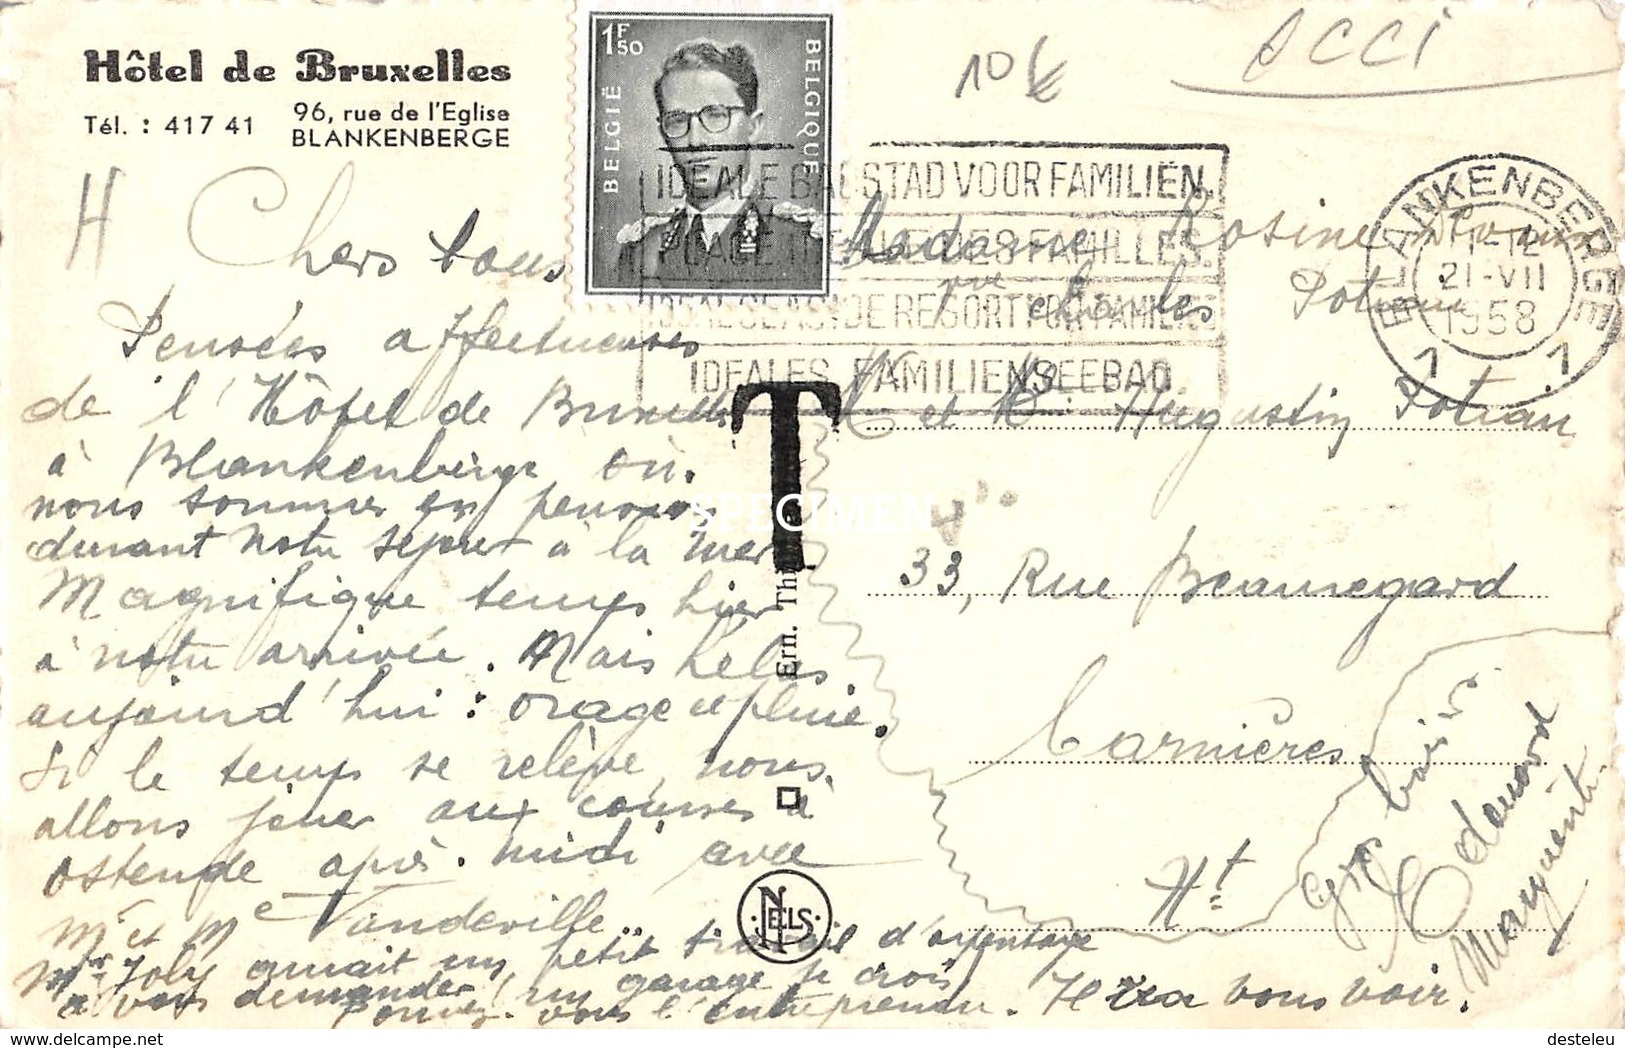 Hôtel de Bruxelles
Tél. : 417 41
96, rue de l'Eglise
BLANKENBERGE
1F50
BELGIË
BELGIQUE
10 €
OCCI
H
IDEALE BADSTAD VOOR FAMILIËN.
PLAGE IDEALE DES FAMILLES.
IDEAL SEASIDE RESORT FOR FAMILIES
IDEALES FAMILIENSEEBAD.
BLANKENBERGE
11-12
21-VII
1958
1 1
Chers tous
Pensées affectueuses
de l'Hôtel de Bruxelles
à Blankenberge où
nous sommes en pension
durant notre séjour à la mer
Magnifique temps hier
à notre arrivée. Mais hélas
aujourd'hui : orage et pluie.
Si le temps se relève, nous
allons jouer aux courses à
Ostende après-midi avec
Mr et Me Vandeville.
Mr Joly aurait un petit travail d'arpentage
à vous demander, un garage je crois
Pouvez-vous l'entreprendre. Il ira vous voir.
Madame Rosine
Charles Potiau
M et Me Augustin Potiau
33, Rue Beauregard
Carnières
Ht
Gros baisers
Edouard
Marguerite
T
SPECIMEN
Ern. Thi
NELS
desteleu
delcampe.net